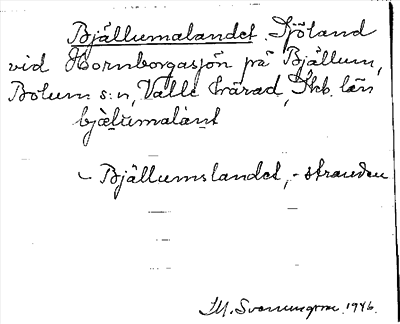 Bjällumalandet. Sjöland
vid Hornborgasjön på Bjällum,
Bolum s:n, Valle härad, Skb. län
bjælumalànt
~ Bjällumslandet, -stranden
M. Svanungsson 1946.